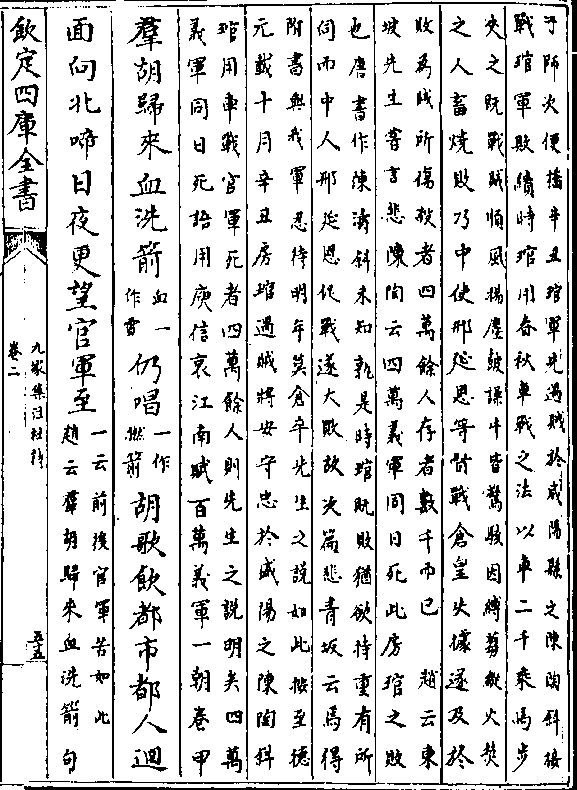 于師次便橋辛丑琯軍先遇賊於咸陽縣之陳陶斜接
戰琯軍敗績時琯用春秋車戰之法以車二千乘馬步
夾之既戰賊順風揚塵鼓譟牛皆驚駭因縛芻縱火焚
之人畜燒敗乃中使邢延恩等督戰倉皇失據遂及於
敗為賊所傷殺者四萬餘人存者數千而已 趙云東
坡先生嘗言悲陳陶云四萬義軍同日死此房琯之敗
也唐書作陳濤斜未知孰是時琯既敗猶欲持重有所
伺而中人邢延恩促戰遂大敗故次篇悲青坂云焉得
附書與我軍忍待明年莫倉卒先生之說如此按至德
元載十月辛丑房琯遇賊將安守忠於咸陽之陳陶斜
琯用車戰官軍死者四萬餘人則先生之說明矣四萬
義軍同日死語用庾信哀江南賦百萬義軍一朝卷甲
羣胡歸來血洗箭血一作雪仍唱一作撚箭胡歌飲都市都人迴
面向北啼日夜更望官軍至一云前後官軍苦如此
趙云羣胡歸來血洗箭句
欽定四庫全書
九家集注杜詩
卷二
五十五